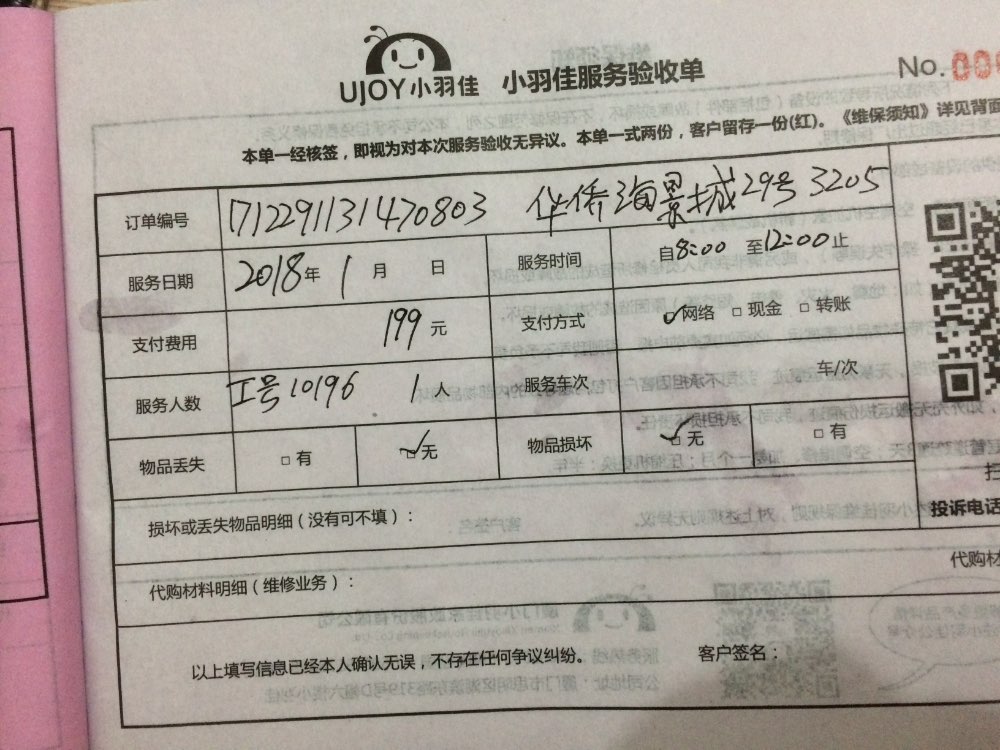 UJOY小羽佳 小羽佳服务验收单 No.
本单一经核签，即视为对本次服务验收无异议。本单一式两份，客户留存一份(红)。《维保须知》详见背面
订单编号 1712291131470803 华侨海景城29号3205
服务日期 2018年 1 月 日 服务时间 自8:00 至12:00止
支付费用 199元 支付方式 ✓网络 □ 现金 □ 转账
服务人数 工号10196 1人 服务车次 车/次
物品丢失 □ 有 ✓无 物品损坏 ✓□ 无 □ 有
损坏或丢失物品明细（没有可不填）：
投诉电话
代购材料明细（维修业务）：
代购材
以上填写信息已经本人确认无误，不存在任何争议纠纷。 客户签名：